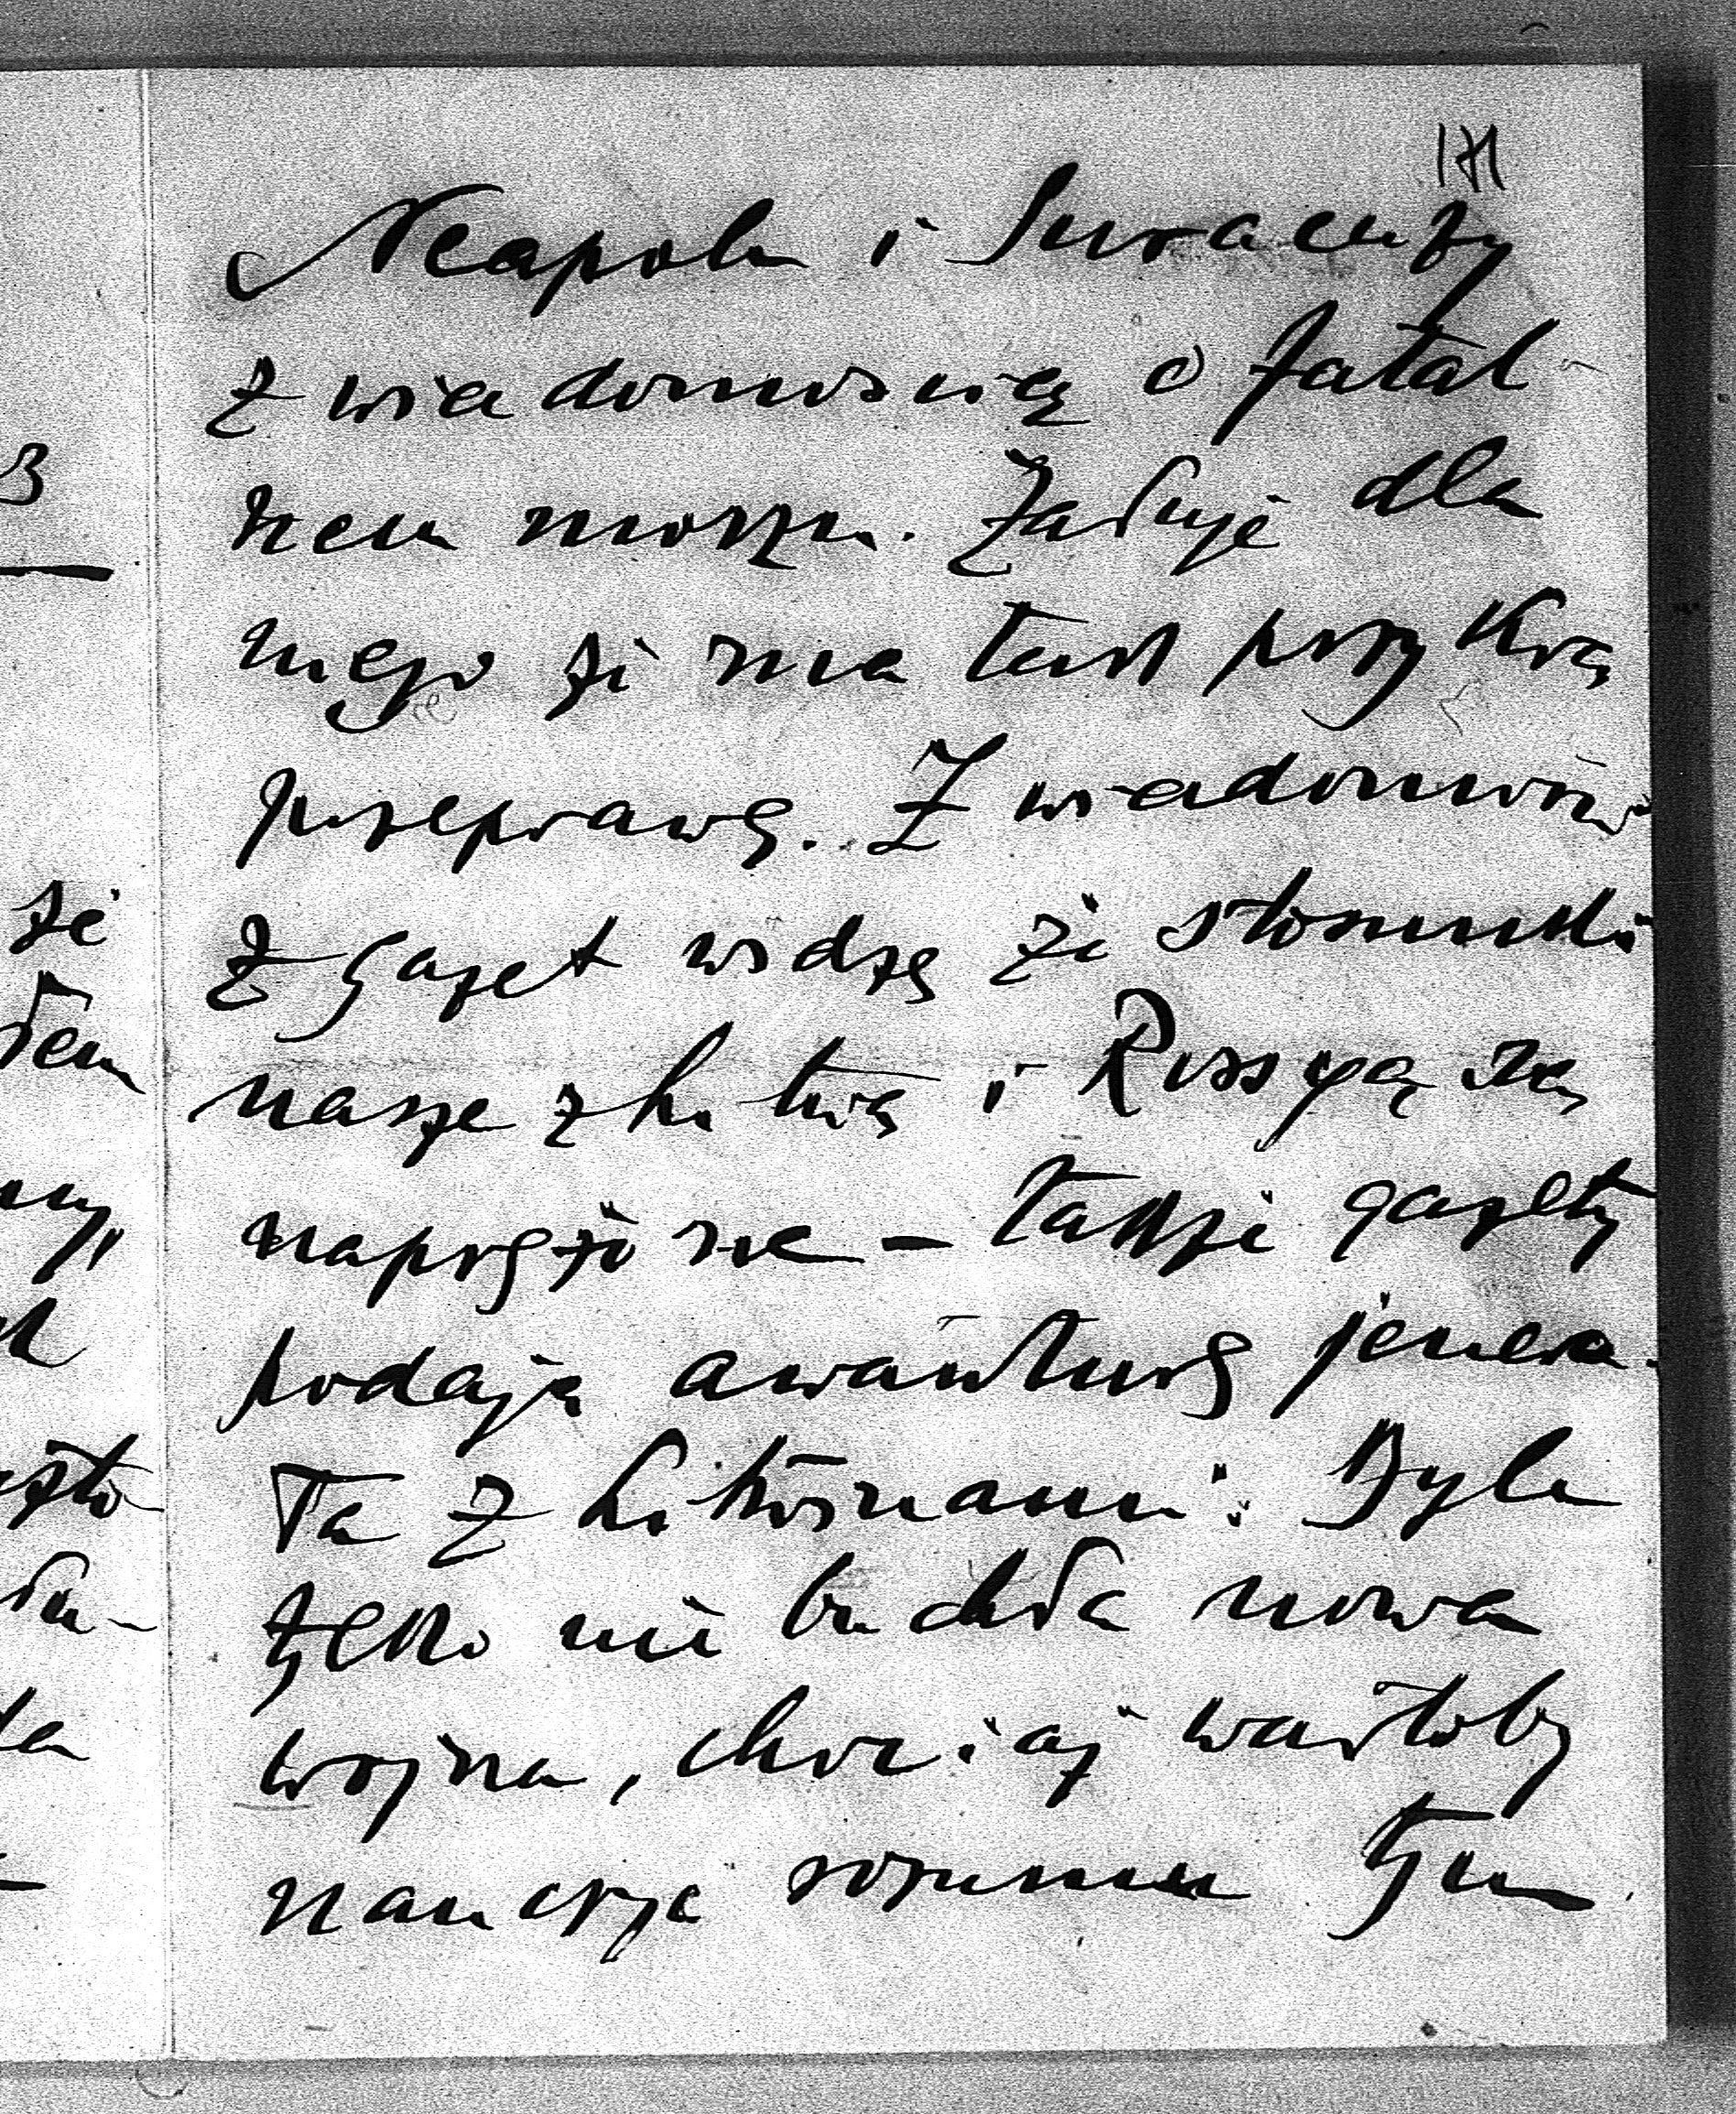 171
Neapolu i Suracuzy
z wiadomością o fatal-
nem morzu. Żałuję dla
niego że ma tak przykrą
przeprawę. Z wiadomości
z gazet widzę że stosunki
nasze z Litwą i Rossyą są
naprężone – także gazety
podają awanturę jenera-
ła z Litwinami. Byle
tylko nie buchła nowa
wojna, chociaż wartoby
nauczyć rozumu tym
3
że
łem